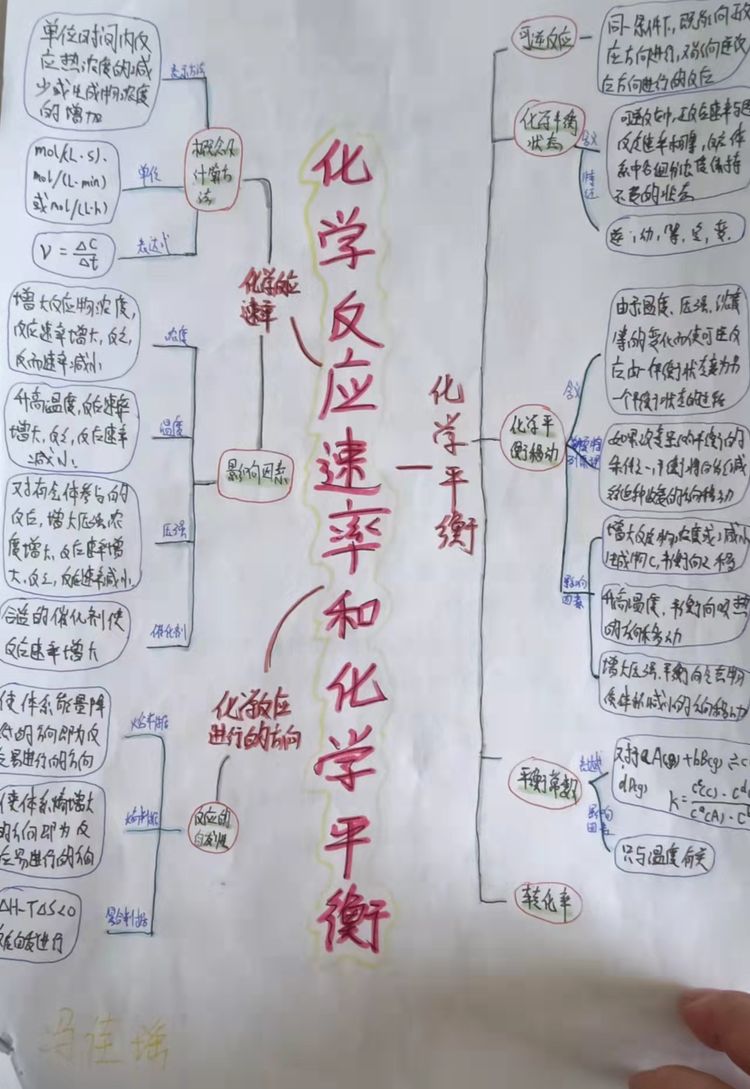 化学反应速率和化学平衡
化学反应
速率
概念及
计算方
法
表示方法
单位时间内反
应热浓度的减
少或生成物浓度
的增加
单位
mol/(L·s).
mol/(L·min)
或mol/(L·h)
表达式
V = ΔC/Δt
影响因素
浓度
增大反应物浓度,
反应速率增大,反之,
反而速率减小
温度
升高温度,反应速率
增大,反之,反应速率
减小.
压强
对有气体参与的
反应,增大压强,浓
度增大,反应速率增
大,反之,反应速率减小.
催化剂
合适的催化剂使
反应速率增大
化学反应
进行的方向
反应的
自发性
焓判据
使体系能量降
低的方向即为反
应易进行的方向
熵判据
使体系熵增大
的方向即为反
应易进行的方向
复合判据
ΔH-TΔS<0
反应自发进行
化学平衡
可逆反应
同一条件下,既能向正反
应方向进行,又能向逆反
应方向进行的反应
化学平衡
状态
含义
可逆反应中,正反应速率与逆
反应速率相等,反应体
系中各组分浓度保持
不变的状态
特征
逆,动,等,定,变.
化学平
衡移动
含义
由于温度、压强、浓度
等的变化而使可逆反
应由一个平衡状态变为另
一个平衡状态的过程
如果改变影响平衡的
条件之一,平衡将向能够减
弱这种改变的方向移动
影响
因素
增大反应物浓度或减小
生成物C,平衡向正移
升高温度,平衡向吸热
的方向移动
增大压强.平衡向气态物
质体积减小的方向移动
平衡常数
表达式
对于aA(g)+bB(g)⇌c
dD(g)
影响
因素
只与温度有关
转化率
冯佳瑶